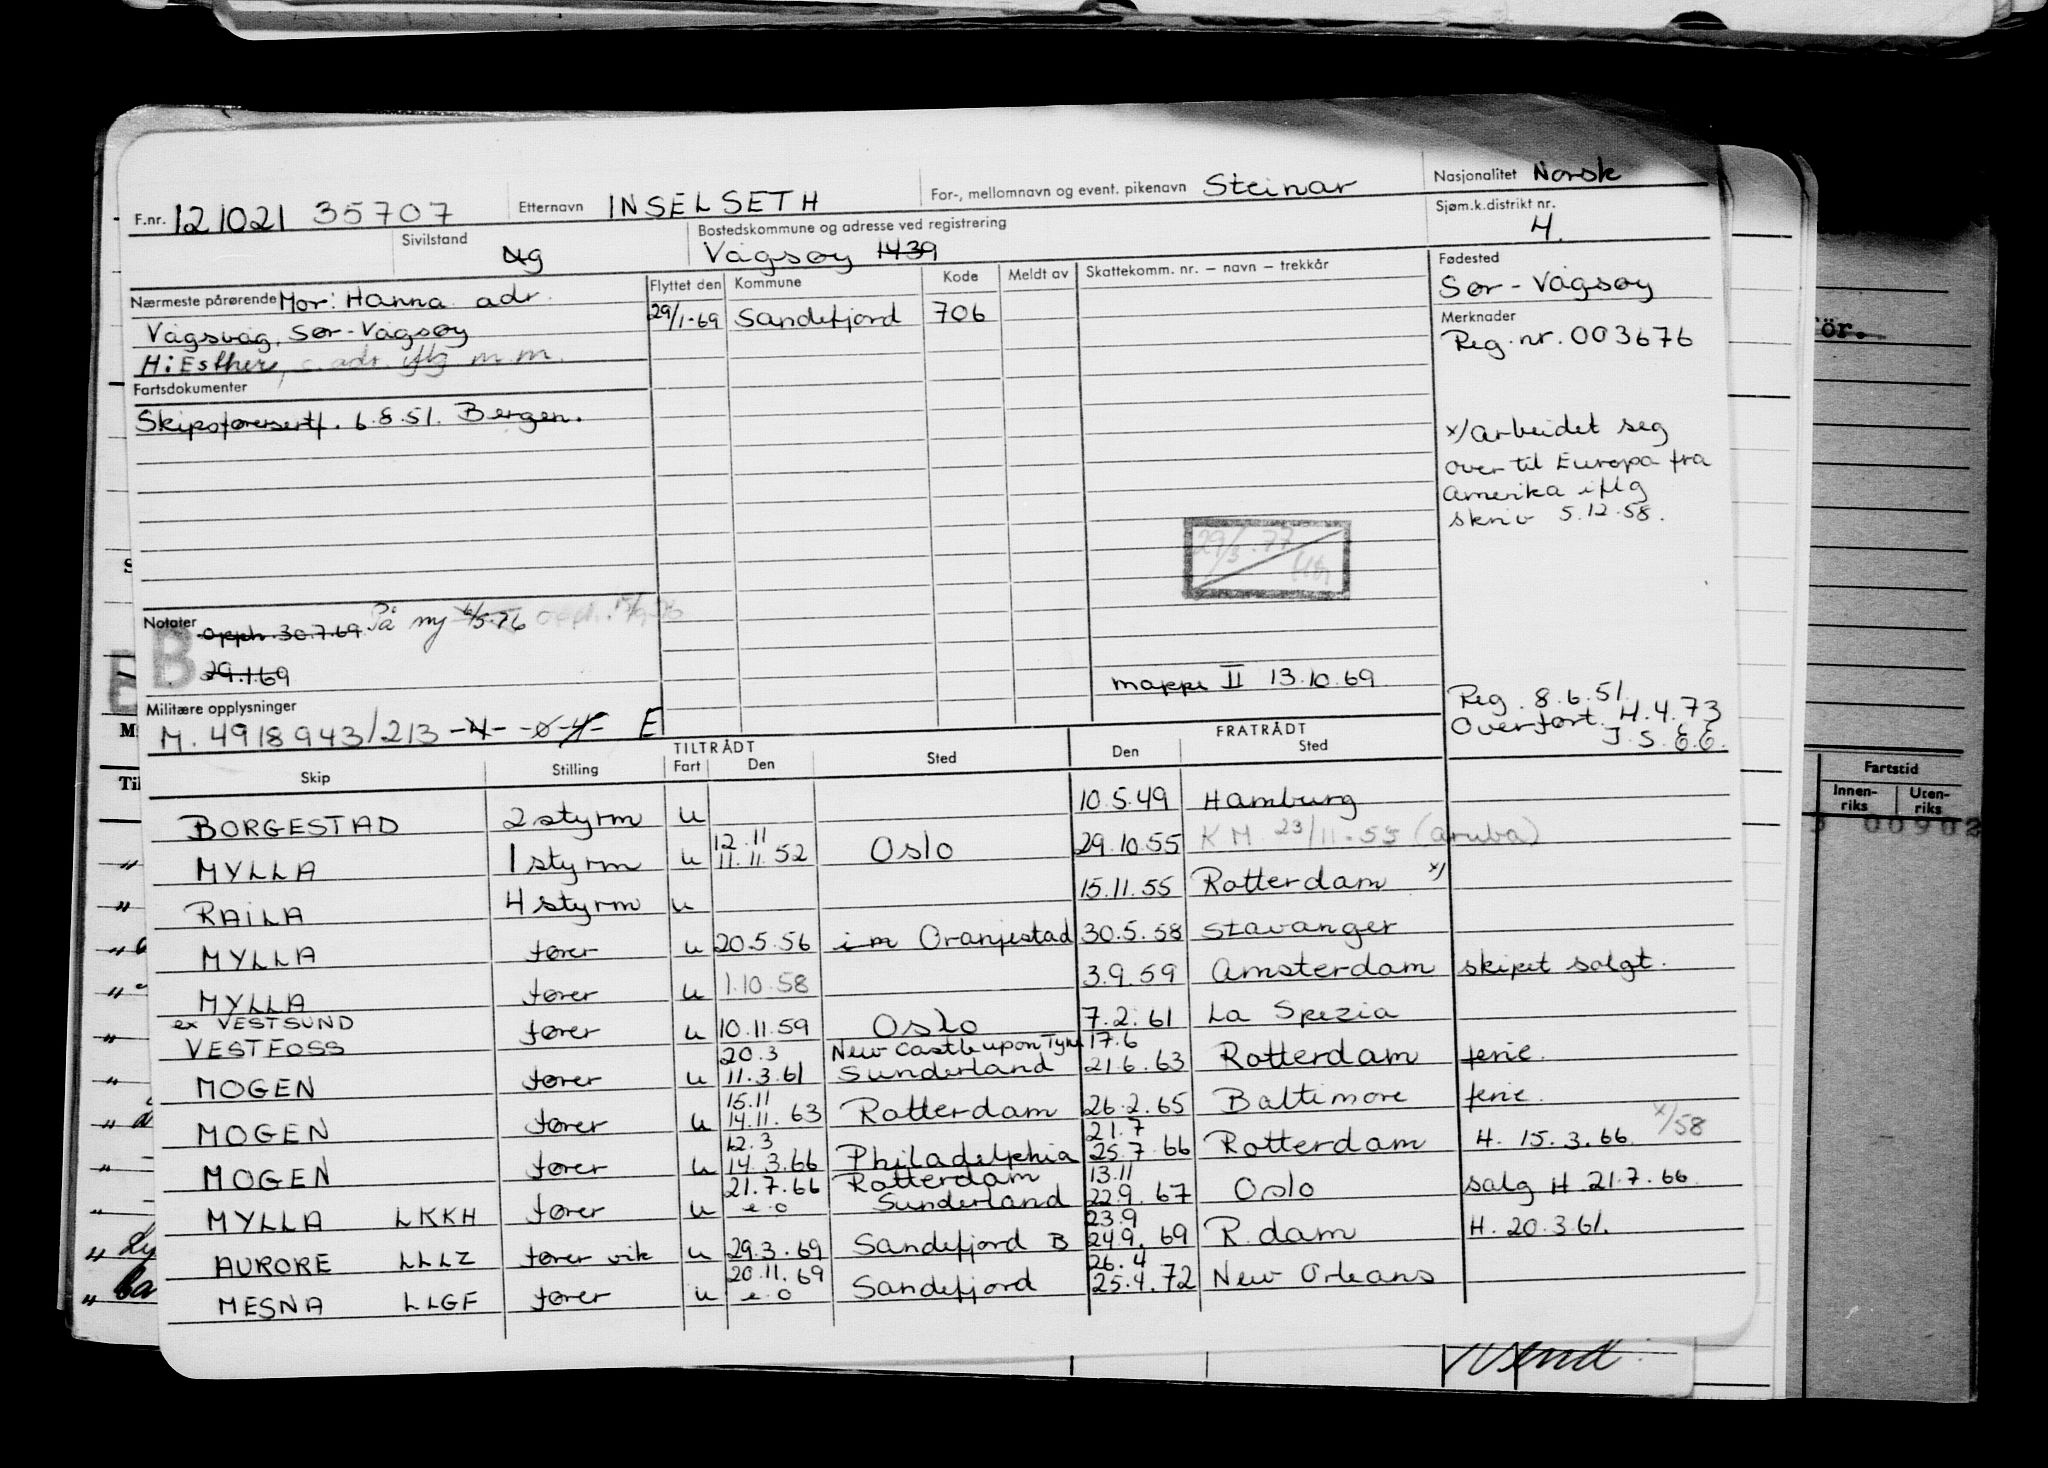 F.nr. 121021 35707 Etternavn INSELSETH For-, mellomnavn og event. pikenavn Steinar Nasjonalitet Norsk
Sivilstand g Bostedskommune og adresse ved registrering Sjøm.k.distrikt nr.
Vågsøy 1439 4.
Nærmeste pårørende Mor: Hanna adr. Flyttet den Kommune Kode Meldt av Skattekomm. nr. – navn – trekkår Fødested
Vågsvåg, Sør-Vågsøy 29/1-69 Sandefjord 706 Sør-Vågsøy
H: Esther, c. adr. iflg m.m. Merknader
Reg. nr. 003676
Fartsdokumenter
Skipsførersertf. 6.8.51. Bergen.
x/ arbeidet seg
over til Europa fra
Amerika iflg
skriv 5.12.58.
29/3.77
Notater opph. 30.7.69 På ny 6/5-76
B
29.1.69
mappe II 13.10.69
Militære opplysninger
M. 4918943/213 E
Reg. 8.6.51.
Overført. 4.4.73
J.S.E.E.
TILTRÅDT FRATRÅDT
Skip Stilling Fart Den Sted Den Sted
BORGESTAD 2 styrm u 10.5.49 Hamburg
MYLLA 1 styrm u 12.11 11.11.52 Oslo 29.10.55 KM 23/11-55 (aruba)
RAILA 4 styrm u 15.11.55 Rotterdam x/
MYLLA fører u 20.5.56 i m Oranjestad 30.5.58 Stavanger
MYLLA fører u 1.10.58 3.9.59 Amsterdam skipet solgt.
ex VESTSUND
VESTFOSS fører u 10.11.59 Oslo 7.2.61 La Spezia
20.3 New Castle upon Tyne 17.6
MOGEN fører u 11.3.61 Sunderland 21.6.63 Rotterdam ferie.
15.11
MOGEN fører u 14.11.63 Rotterdam 26.2.65 Baltimore ferie.
12.3 21.7 x/58
MOGEN fører u 14.3.66 Philadelphia 25.7.66 Rotterdam H. 15.3.66.
21.7.66 Rotterdam 13.11
MYLLA LKKH fører u e.o Sunderland 22.9.67 Oslo salg H 21.7.66
23.9
AURORE LLLZ fører vik u 29.3.69 Sandefjord B 24.9.69 R.dam H. 20.3.61.
20.11.69 26.4
MESNA LLGF fører u e.o Sandefjord 25.4.72 New Orleans
för.
Fartstid
Innen-
riks
Uten-
riks
00902